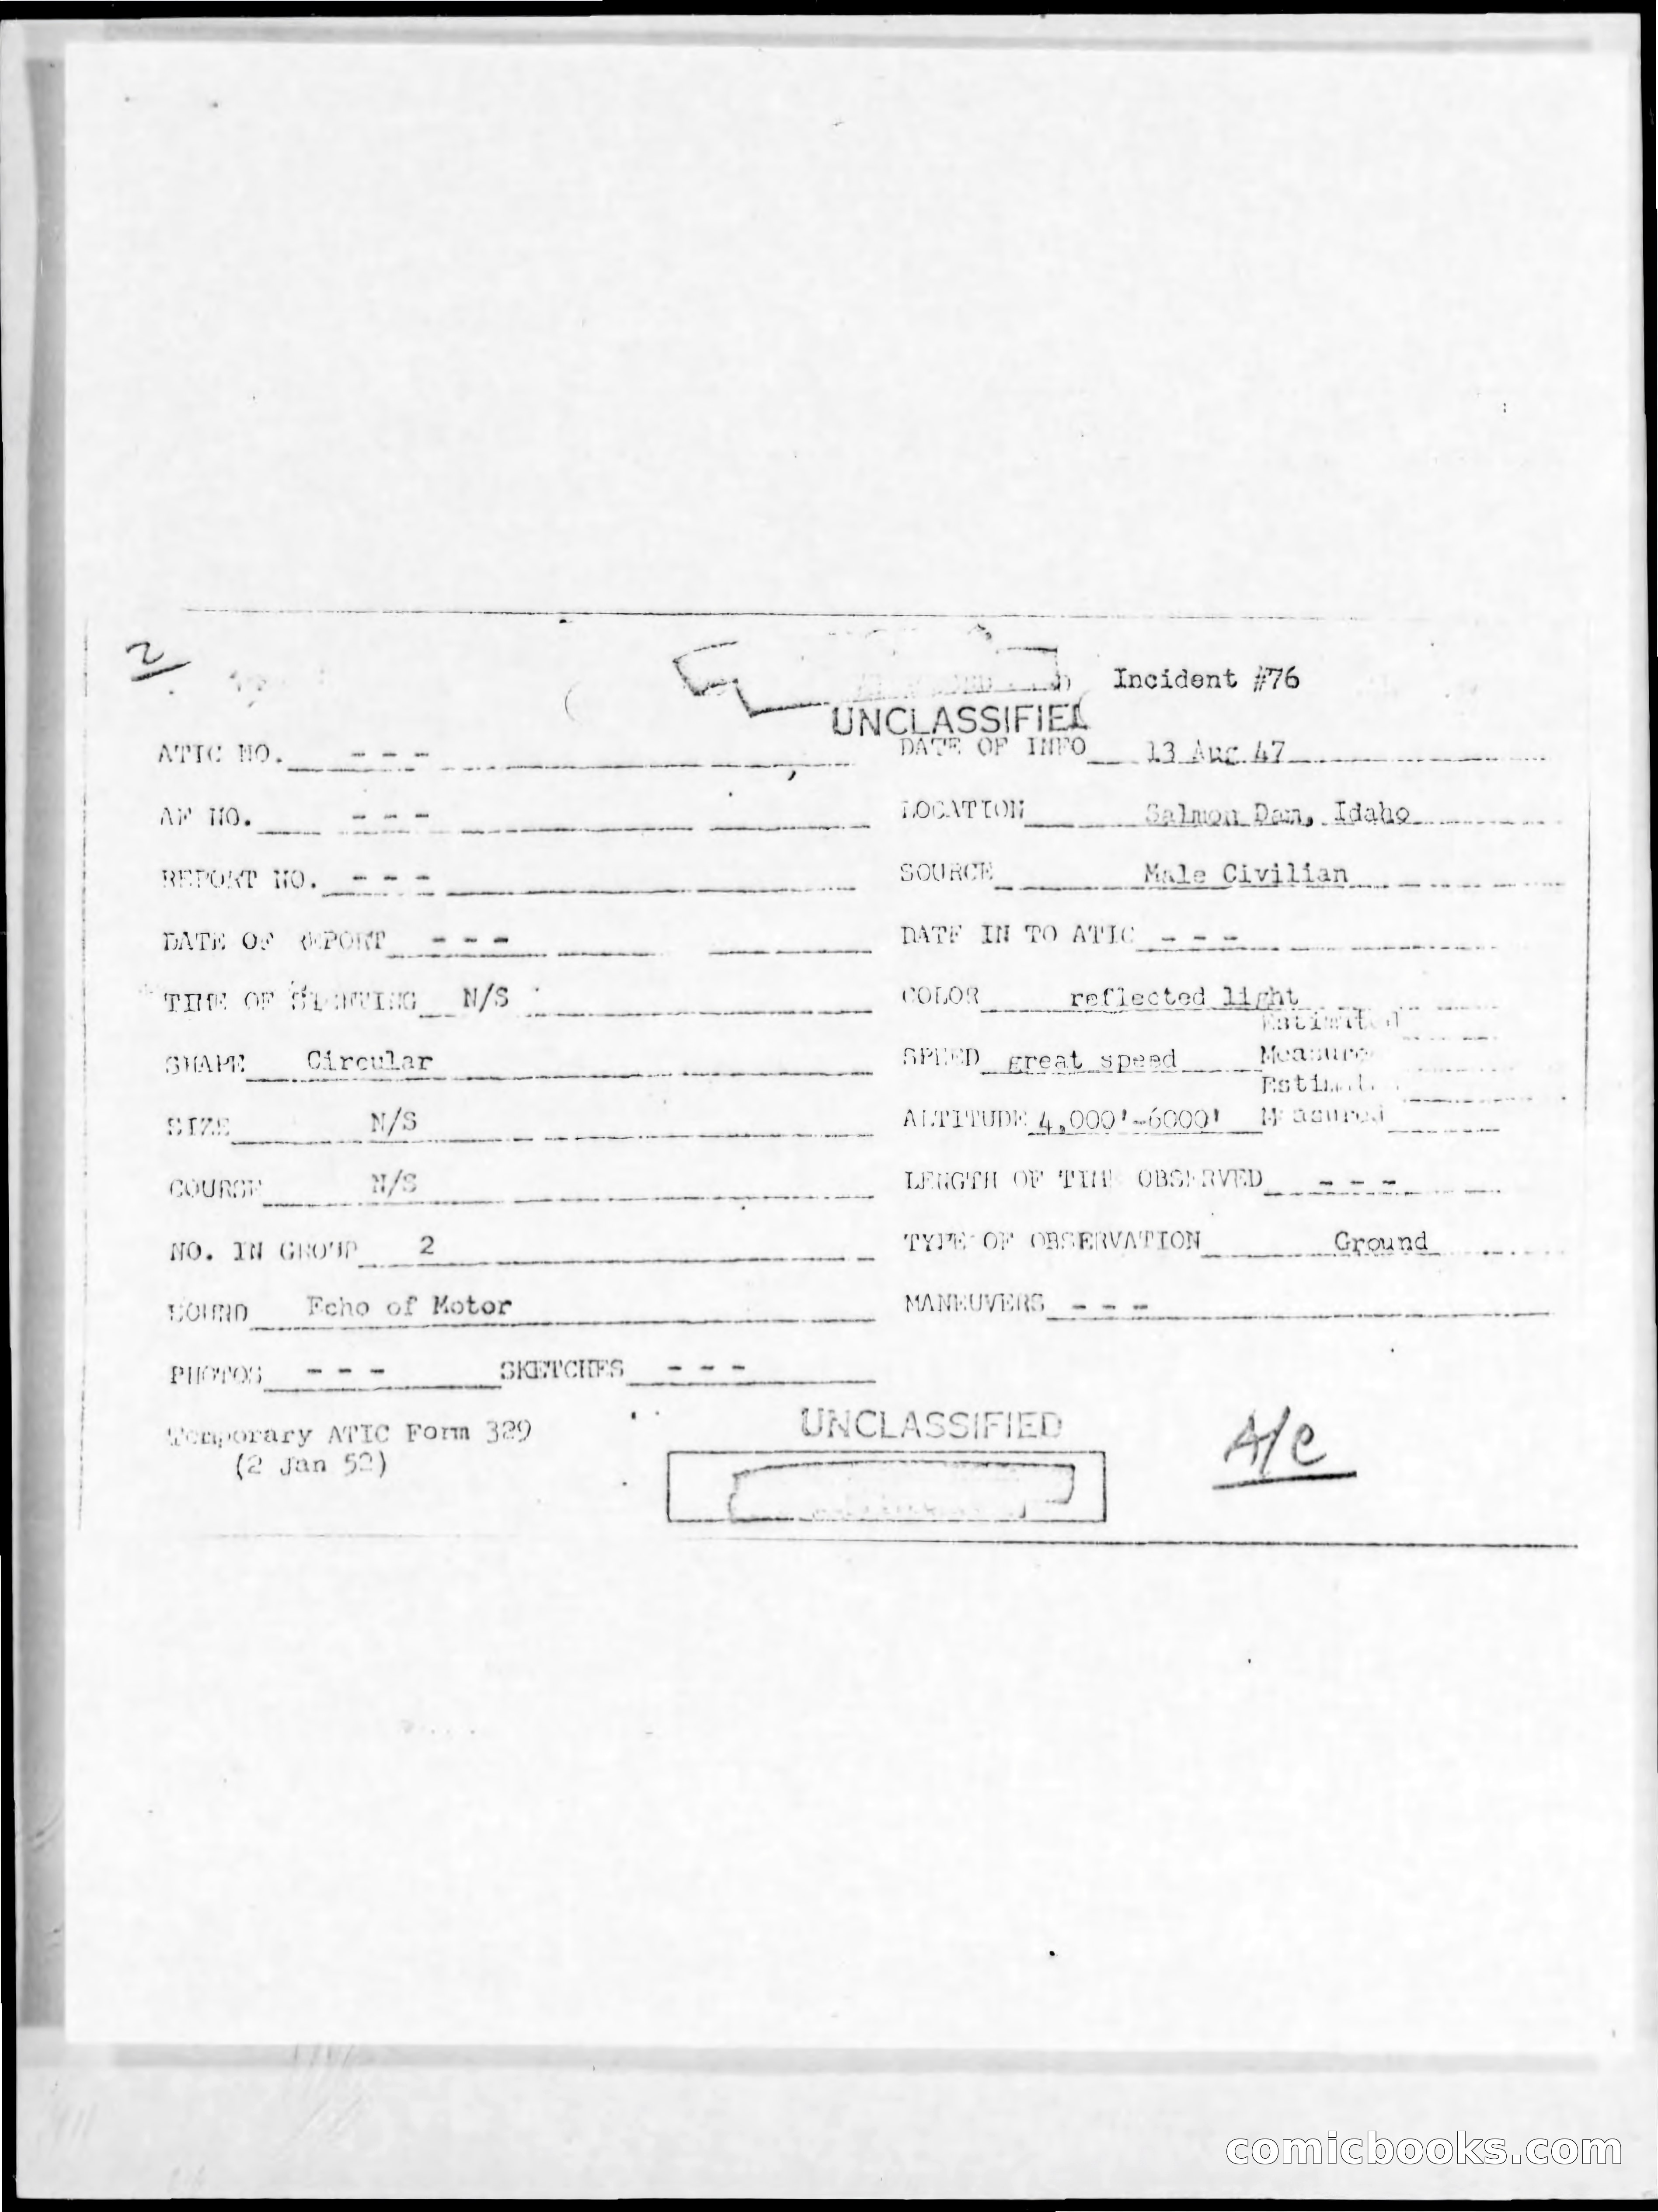 2
Incident #76
UNCLASSIFIED
ATIC NO. - - - DATE OF INFO 13 Aug 47
AF NO. - - - LOCATION Salmon Dam, Idaho
REPORT NO. - - - SOURCE Male Civilian
DATE OF REPORT - - - DATE IN TO ATIC - - -
TIME OF SIGHTING N/S COLOR reflected light
Estimated
SHAPE Circular SPEED great speed Measured
Estimated
SIZE N/S ALTITUDE 4,000'-6000' Measured
COURSE N/S LENGTH OF TIME OBSERVED - - -
NO. IN GROUP 2 TYPE OF OBSERVATION Ground
SOUND Echo of Motor MANEUVERS - - -
PHOTOS - - - SKETCHES - - -
Temporary ATIC Form 329
(2 Jan 52)
UNCLASSIFIED
A/C
comicbooks.com